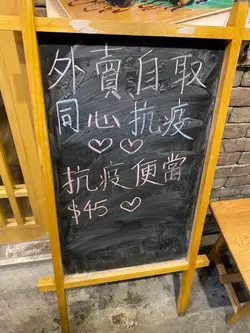 外賣自取
同心抗疫
抗疫便當
$45